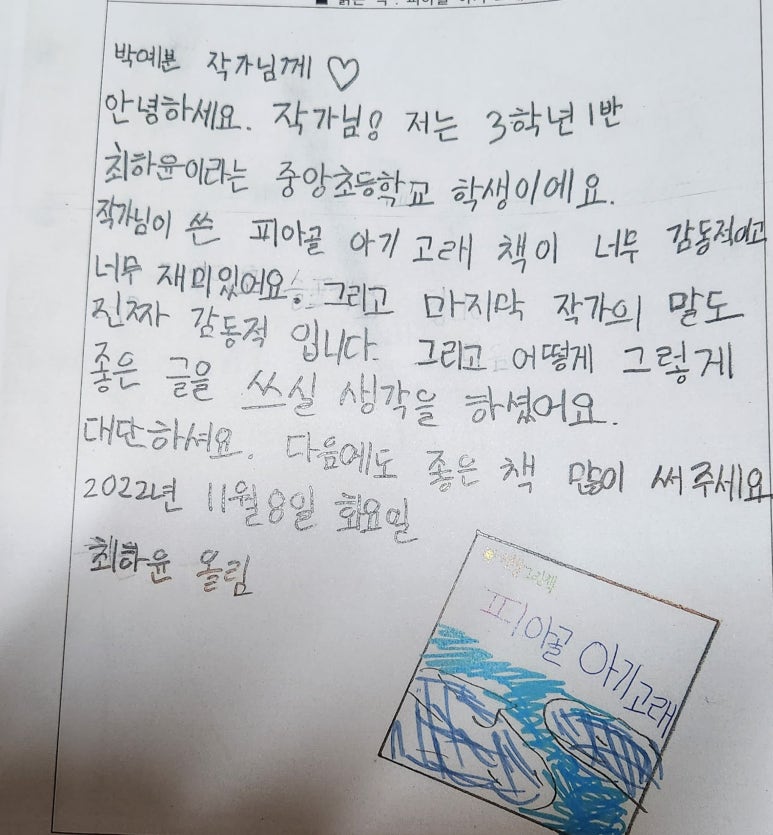 박예분 작가님께 ♡
안녕하세요. 작가님! 저는 3학년 1반
최하윤이라는 중앙초등학교 학생이에요.
작가님이 쓴 피아골 아기 고래 책이 너무 감동적이고
너무 재미있어요. 그리고 마지막 작가의 말도
진짜 감동적 입니다. 그리고 어떻게 그렇게
좋은 글을 쓰실 생각을 하셨어요.
대단하셔요. 다음에도 좋은 책 많이 써 주세요
2022년 11월 8일 화요일
최하윤 올림
피아골 아기고래